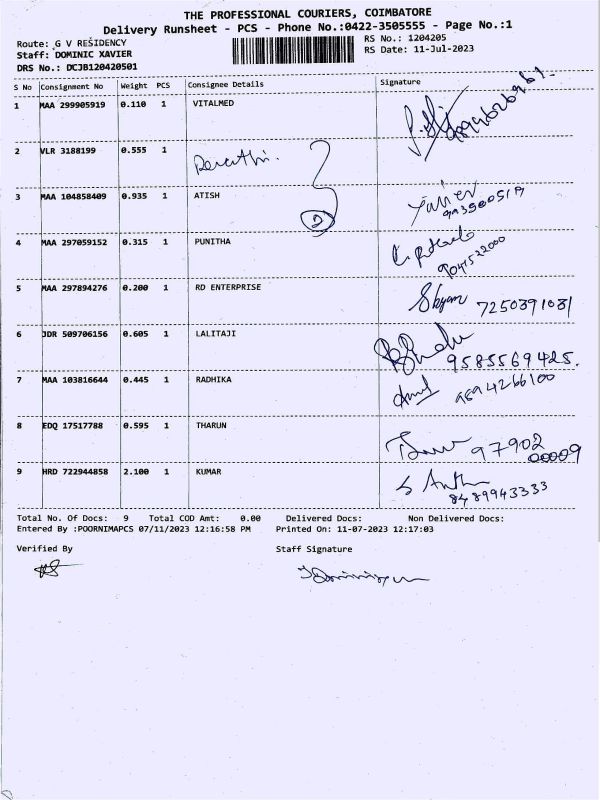 THE PROFESSIONAL COURIERS, COIMBATORE
Delivery Runsheet - PCS - Phone No.:0422-3505555 - Page No.:1
Route: G V RESIDENCY
RS No.: 1204205
Staff: DOMINIC XAVIER
RS Date: 11-Jul-2023
DRS No.: DCJB120420501
S No Consignment No Weight PCS Consignee Details Signature
1 MAA 299905919 0.110 1 VITALMED
2 VLR 3188199 0.555 1
3 MAA 104858409 0.935 1 ATISH
2
4 MAA 297059152 0.315 1 PUNITHA
9041522000
5 MAA 297894276 0.200 1 RD ENTERPRISE Shyam 7250391031
6 JDR 509706156 0.605 1 LALITAJI
9585569425.
7 MAA 103816644 0.445 1 RADHIKA 9894266100
8 EDQ 17517788 0.595 1 THARUN
97902
00009
9 HRD 722944858 2.100 1 KUMAR
8489943333
Total No. Of Docs: 9 Total COD Amt: 0.00 Delivered Docs: Non Delivered Docs:
Entered By :POORNIMAPCS 07/11/2023 12:16:58 PM Printed On: 11-07-2023 12:17:03
Verified By Staff Signature